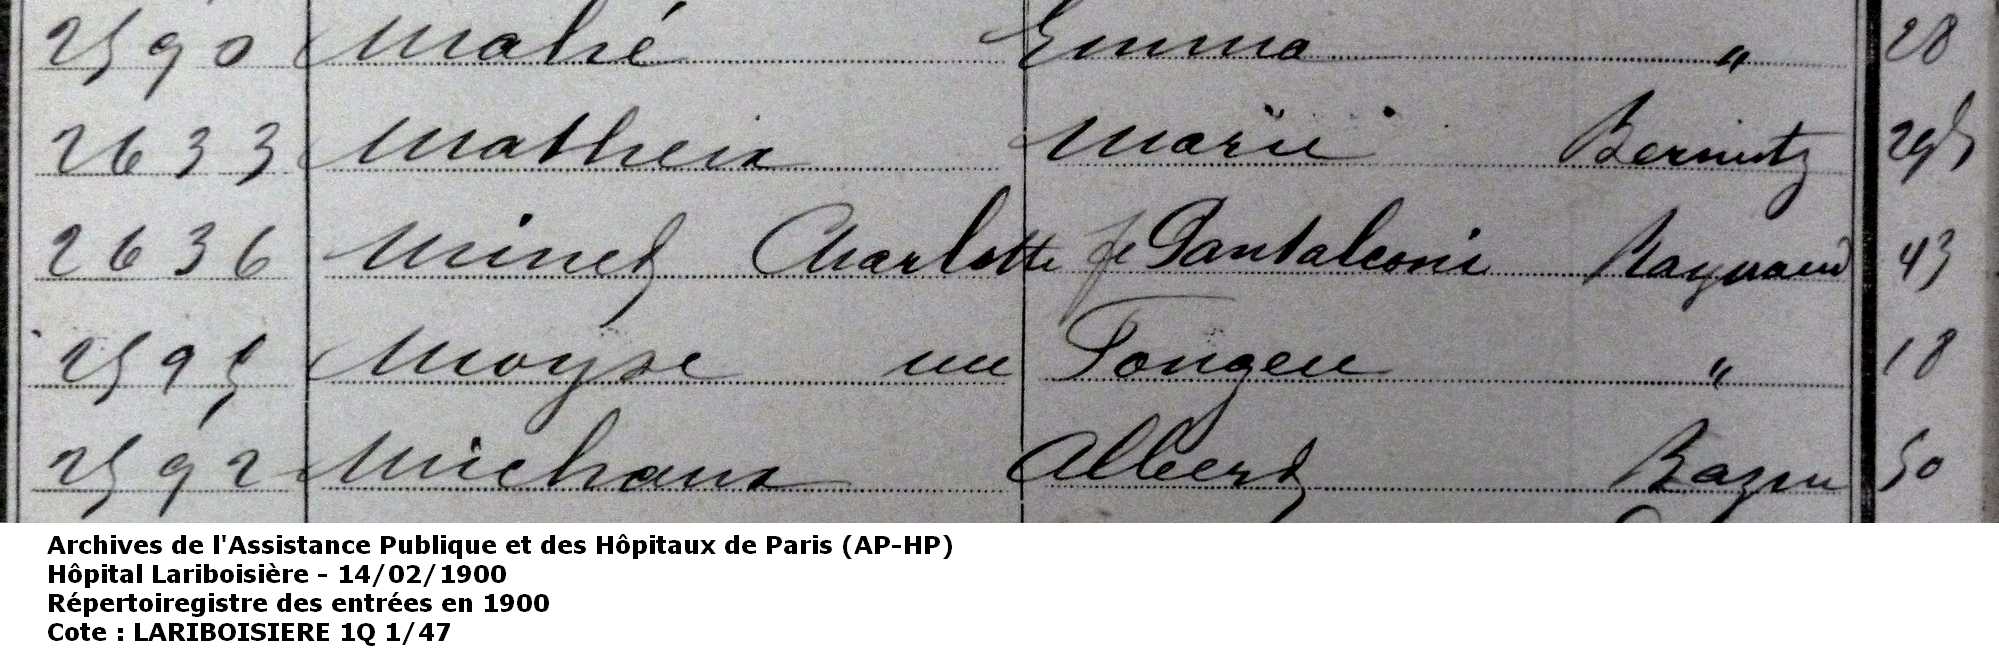 2590 Mahé Emma " 28
2633 Matheix Marie Bernutz 25
2636 Minet Charlotte fe Pantaleoni Raynaud 43
2595 Moyse née Fougeu " 18
2592 Michaux Albert Bazin 50
Archives de l'Assistance Publique et des Hôpitaux de Paris (AP-HP)
Hôpital Lariboisière - 14/02/1900
Répertoiregistre des entrées en 1900
Cote : LARIBOISIERE 1Q 1/47